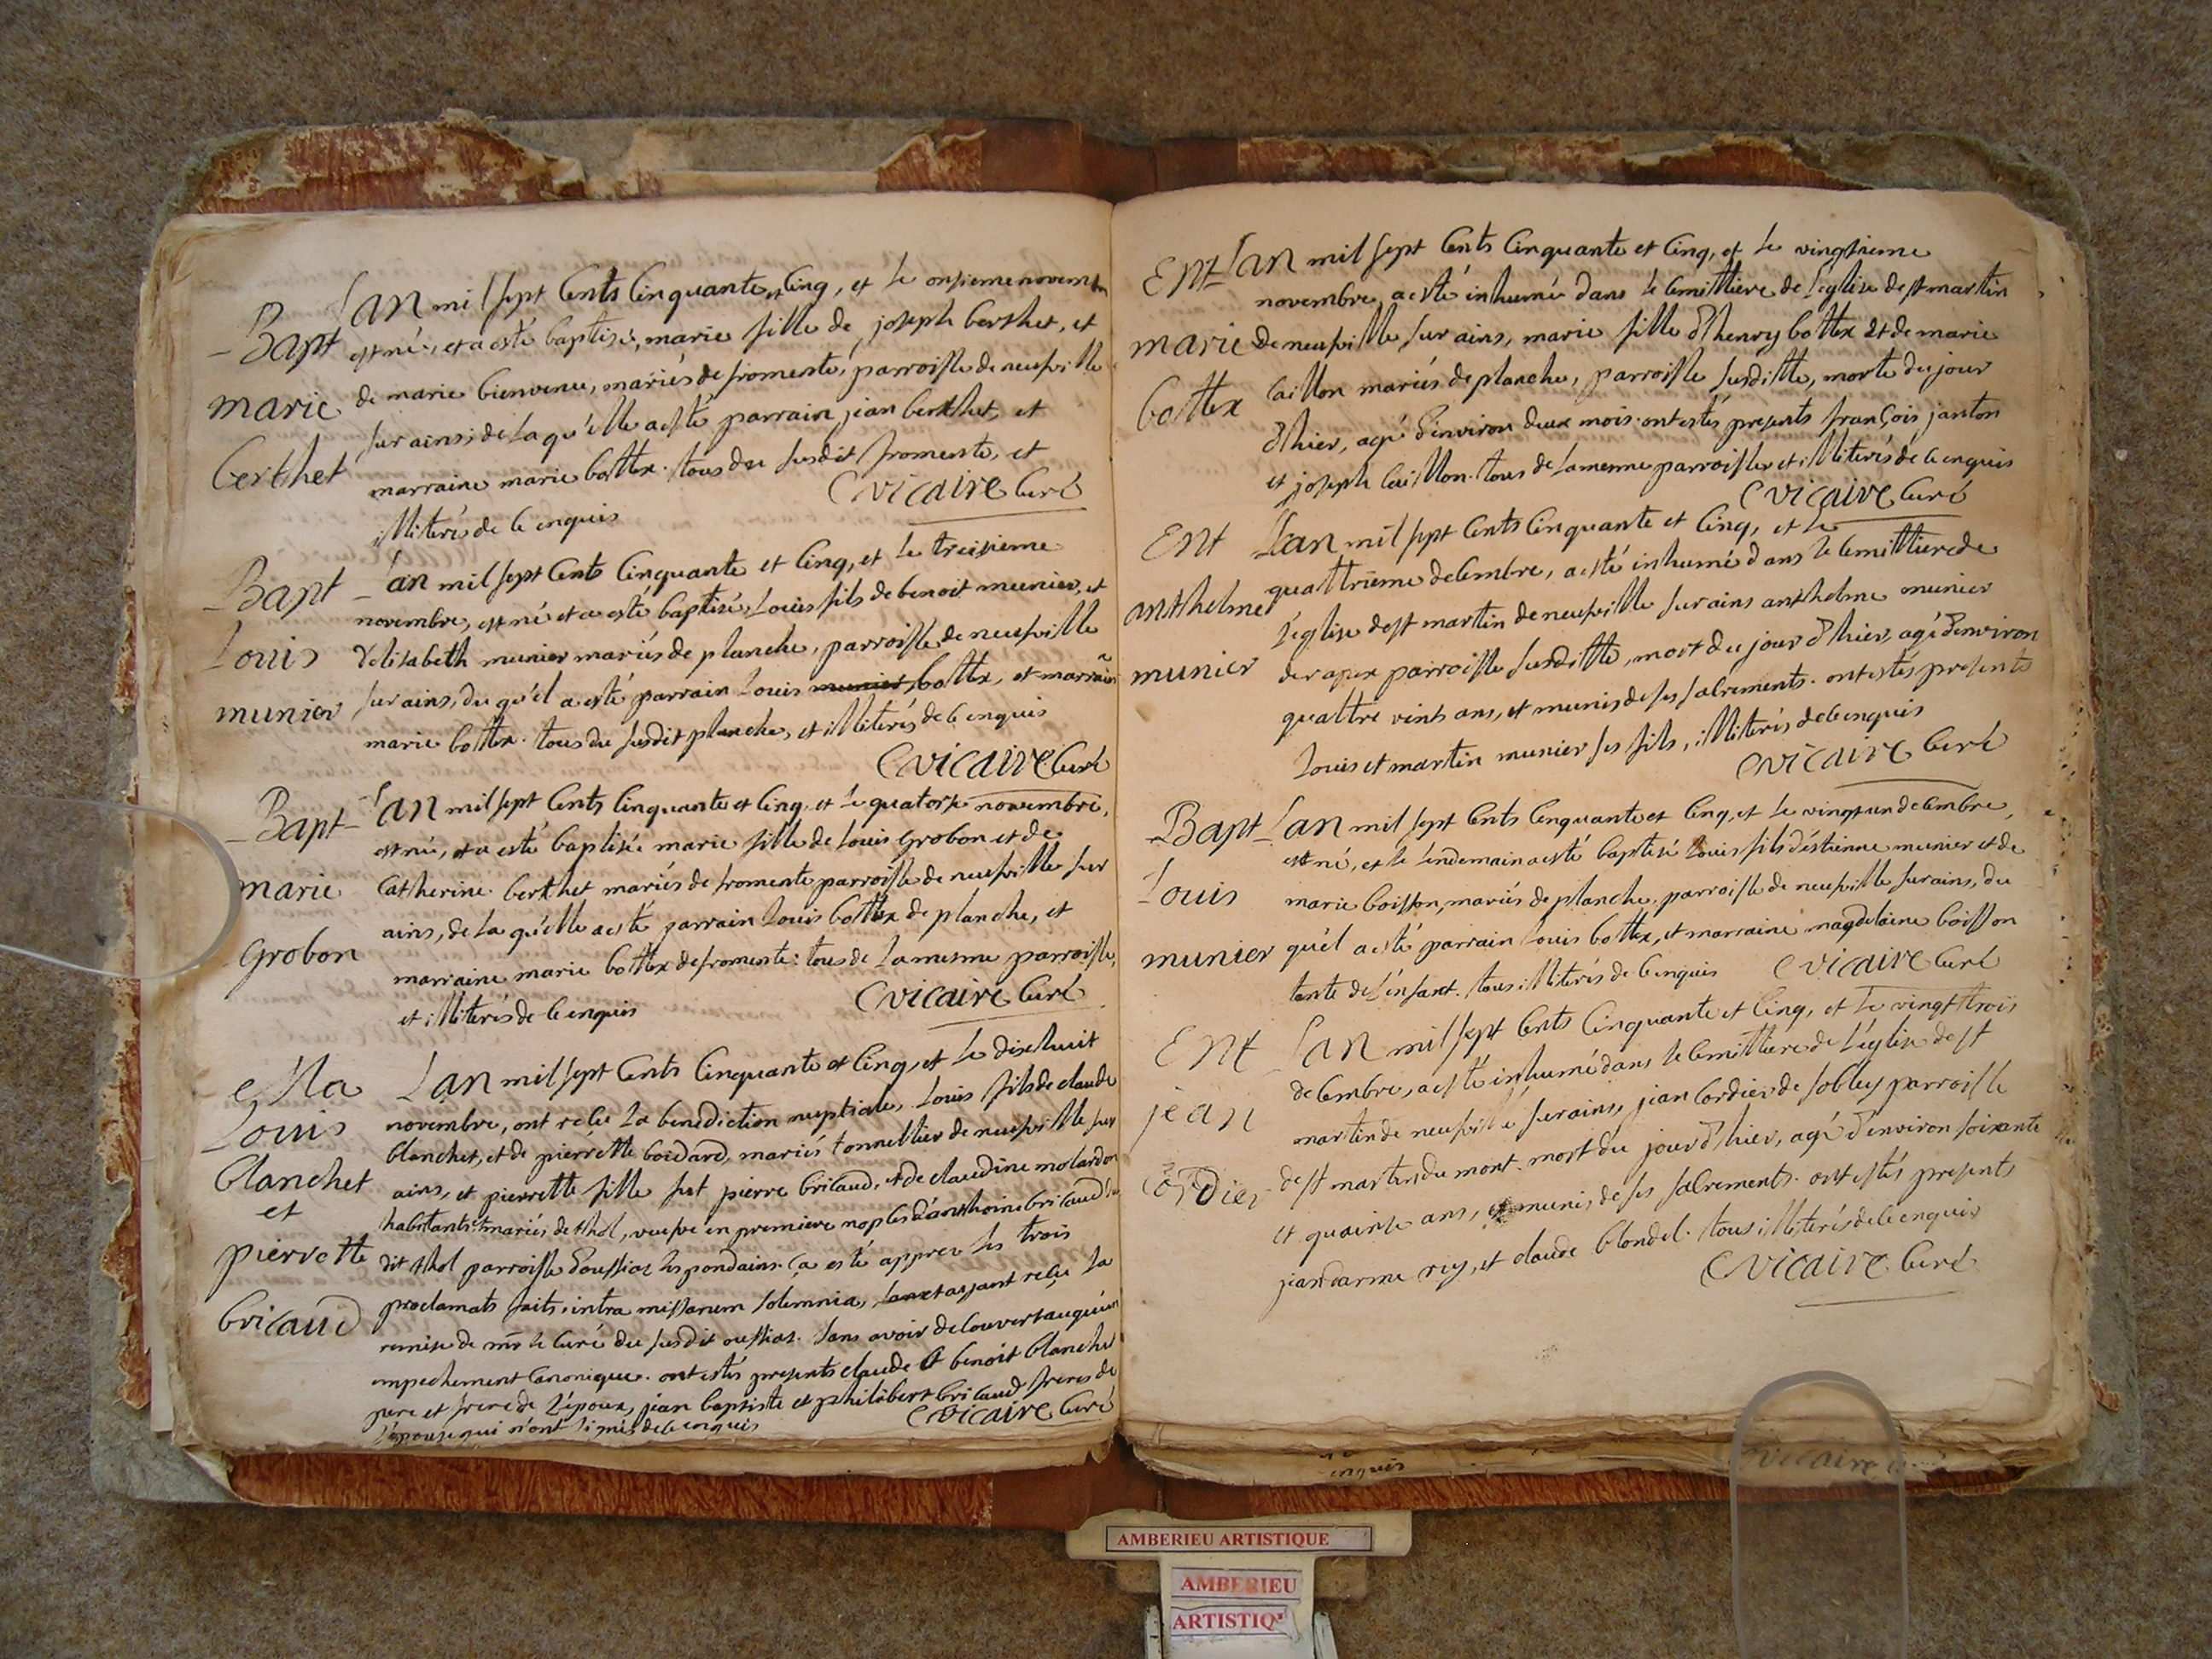 Bapt
marie
berthet
L'an mil sept cents cinquante et cinq, et le onsieme novembre
est né, et a esté baptisé, marie fille de joseph berthet, et
de marie bienvenu, mariés de fromente, parroisse de neufville
sur ains, de la qu'elle a esté parrain jean berthet, et
marraine marie bottex. tous du susdit fromente, et
illiterés de ce enquis
C vicaire Curé
Bapt
Louis
munier
L'an mil sept cents cinquante et cinq, et le treisieme
novembre, est né et a esté baptisé, Louis fils de benoit munier, et
d'elisabeth munier mariés de planche, parroisse de neufville
sur ains, du qu'el a esté parrain Louis munier bottex, et marraine
marie bottex. tous du susdit planche, et illiterés de ce enquis
C vicaire Curé
Bapt
marie
grobon
L'an mil sept cents cinquante et cinq, et le quatorse novembre,
est né, et a esté baptisée marie fille de Louis Grobon et de
Catherine berthet mariés de fromente parroisse de neufville sur
ains, de la qu'elle a esté parrain Louis bottex de planche, et
marraine marie bottex de fromente: tous de la mesme parroisse,
et illiterés de ce enquis
C vicaire Curé
Ma
Louis
blanchet
et
pierrette
bricaud
L'an mil sept cents cinquante et cinq, et le dixhuit
novembre, ont reçu la benediction nuptiale, Louis fils de claude
blanchet, et de pierrette boudard, mariés tonnellier de neufville sur
ains, et pierrette fille fut pierre bricaud, et de claudine molardon
habitants et mariés de thol, veufve en premiere nopces d'anthoine bricaud
dit thol parroisse d'oussiat lespondains. ça esté apprez les trois
proclamats faits, intra missarum solemnia, ayant reçu la
remise de mr le Curé du susdit oussiat. sans avoir decouvert auqu'un
empechement Canonique. ont estés presents claude et benoit blanchet
pere et frere de l'époux, jean baptiste et philibert bricaud freres de
l'épouse qui n'ont signés de ce enquis
C vicaire Curé
Ent
marie
bottex
L'an mil sept cents cinquante et cinq, et le vingtieme
novembre, a esté inhumée dans le cemittiere de l'église de st martin
de neufville sur ains, marie fille d'henry bottex et de marie
Caillon mariés de planche, parroisse susditte, morte du jour
d'hier, agé d'environ deux mois. ont estés presents françois janton
et joseph Caillon. tous de la mesme parroisse et illiterés de ce enquis
C vicaire Curé
Ent
anthelme
munier
L'an mil sept cents cinquante et cinq, et le
quattrieme decembre, a esté inhumé dans le cemittiere de
l'église de st martin de neufville sur ains anthelme munier
de rapex parroisse susditte, mort du jour d'hier, agé d'environ
quattre vints ans, et munis de ses sacrements. ont estés presents
Louis et martin munier ses fils, illiterés de ce enquis
C vicaire Curé
Bapt
Louis
munier
L'an mil sept cents cinquante et cinq, et le vingt un decembre,
est né, et le lendemain a esté baptisé Louis fils d'éstienne munier et de
marie boisson, mariés de planche, parroisse de neufville sur ains, du
qu'el a esté parrain Louis bottex, et marraine magdelaine boisson
tante de l'enfant. tous illiterés de ce enquis
C vicaire Curé
Ent
jean
Cordier
L'an mil sept cents cinquante et cinq, et le vingt trois
decembre, a esté inhumé dans le cemittiere de l'église de st
martin de neufville sur ains, jean Cordier de sobley parroisse
de st martin du mont. mort du jour d'hier, agé d'environ soixante
et quainse ans, et munis de ses sacrements. ont estés presents
jean darme rey, et claude blondel. tous illiterés de ce enquis
C vicaire Curé
enquis
vicaire
AMBERIEU ARTISTIQUE
AMBERIEU
ARTISTIQ